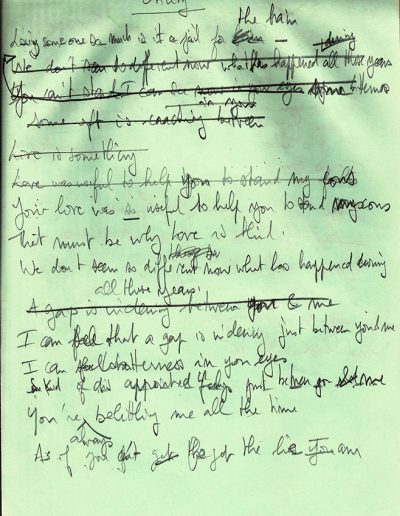 the train
Loving some one so much is it a fail to
during
We don't seem so different now what has happened all these years
You can't stand I can be in your eyes bitterness
in your
some of it is coaching between
Love is something
Love was useful to help you to stand my cons
Your love was so useful to help you to stand my cons
That must be why love is blind.
We don't seem so different now what has happened during
all these years.
A gap is widening between you & me
I can feel that a gap is widening just between you & me
I can feel bitterness in your eyes
A kind of disappointed feeling just between you & me
You're belittling me all the time
always
As if you got the of the lie you am